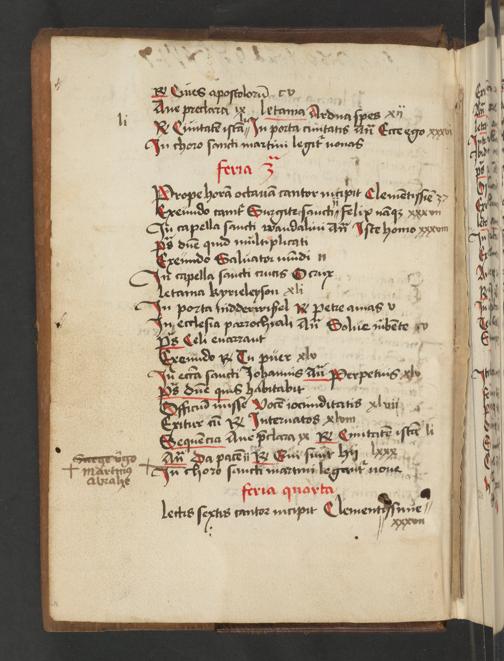 R Ciues apostolorū cv
Aue preclara ix letania Ardua spes xii
li R Ciuitatē istā In porta ciuitatis añ Ecce ego xxxvi
In choro sancti martini legit nonas
feria 3ª
Prope horā octauā cantor incipit Clementissie 37
Exeundo cant Surgite sancti Felix namqz xxxvii
In capella sancti wandalini Añ Iste homo xxxviii
ps dñe quid multiplicati
Exeundo Saluator mūdi ii
In capella sancti crucis O crux
letania kyrieleyson xli
In porta nidderwisel R Petre amas v
In ecclesia parrochiali Añ Solue iubente cv
ps Celi enarrant
Exeundo R Tu puer xlv
In eccīa sancti Johannis añ Perpetuis xlv
ps dñe quis habitabit
Officiū misse Vocē iocunditatis xlvii
Exitur cū R Internatos xlviii
Sequēcia Aue pclara ix R Ciuitatē istā li
Añ Da pacē R Qui sunt hii lxxx
In choro sancti martini legūtur none
Surge virgo
martirius
Abrahe
feria quarta
lectis sextis cantor incipit Clementissime
xxxvii